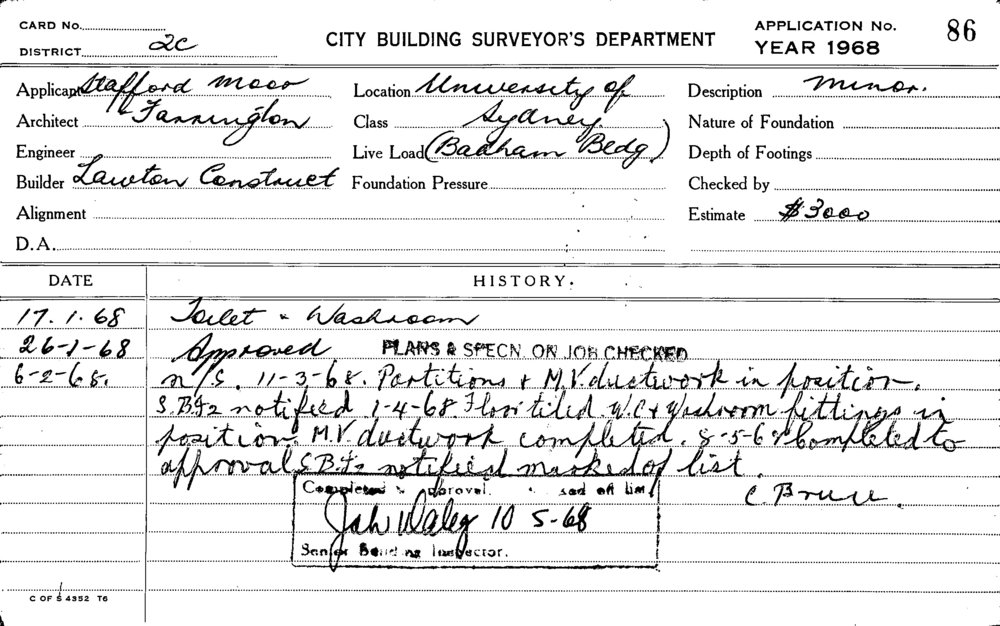 CARD No.
DISTRICT 2C
CITY BUILDING SURVEYOR'S DEPARTMENT
APPLICATION No. 86
YEAR 1968
Applicant Stafford Moor
Architect & Farrington
Engineer
Builder Lawton Construct
Alignment
D.A.
Location University of
Class Sydney
Live Load (Badham Bldg)
Foundation Pressure
Description Minor.
Nature of Foundation
Depth of Footings
Checked by
Estimate $3000
DATE HISTORY.
17.1.68 Toilet & Washroom
26-1-68 Approved PLANS & SPECN. ON JOB CHECKED
6-2-68. N/S. 11-3-68. Partitions & M.V. ductwork in position.
notified 1-4-68. Floor tiled W.C & Washroom fittings in
position. M.V. ductwork completed. 8-5-68 Completed to
approval notified marked of list.
C. Bruce.
Completed approval. off list
Daley 10 5-68
Senior Building Inspector.
C OF S 4352 T6